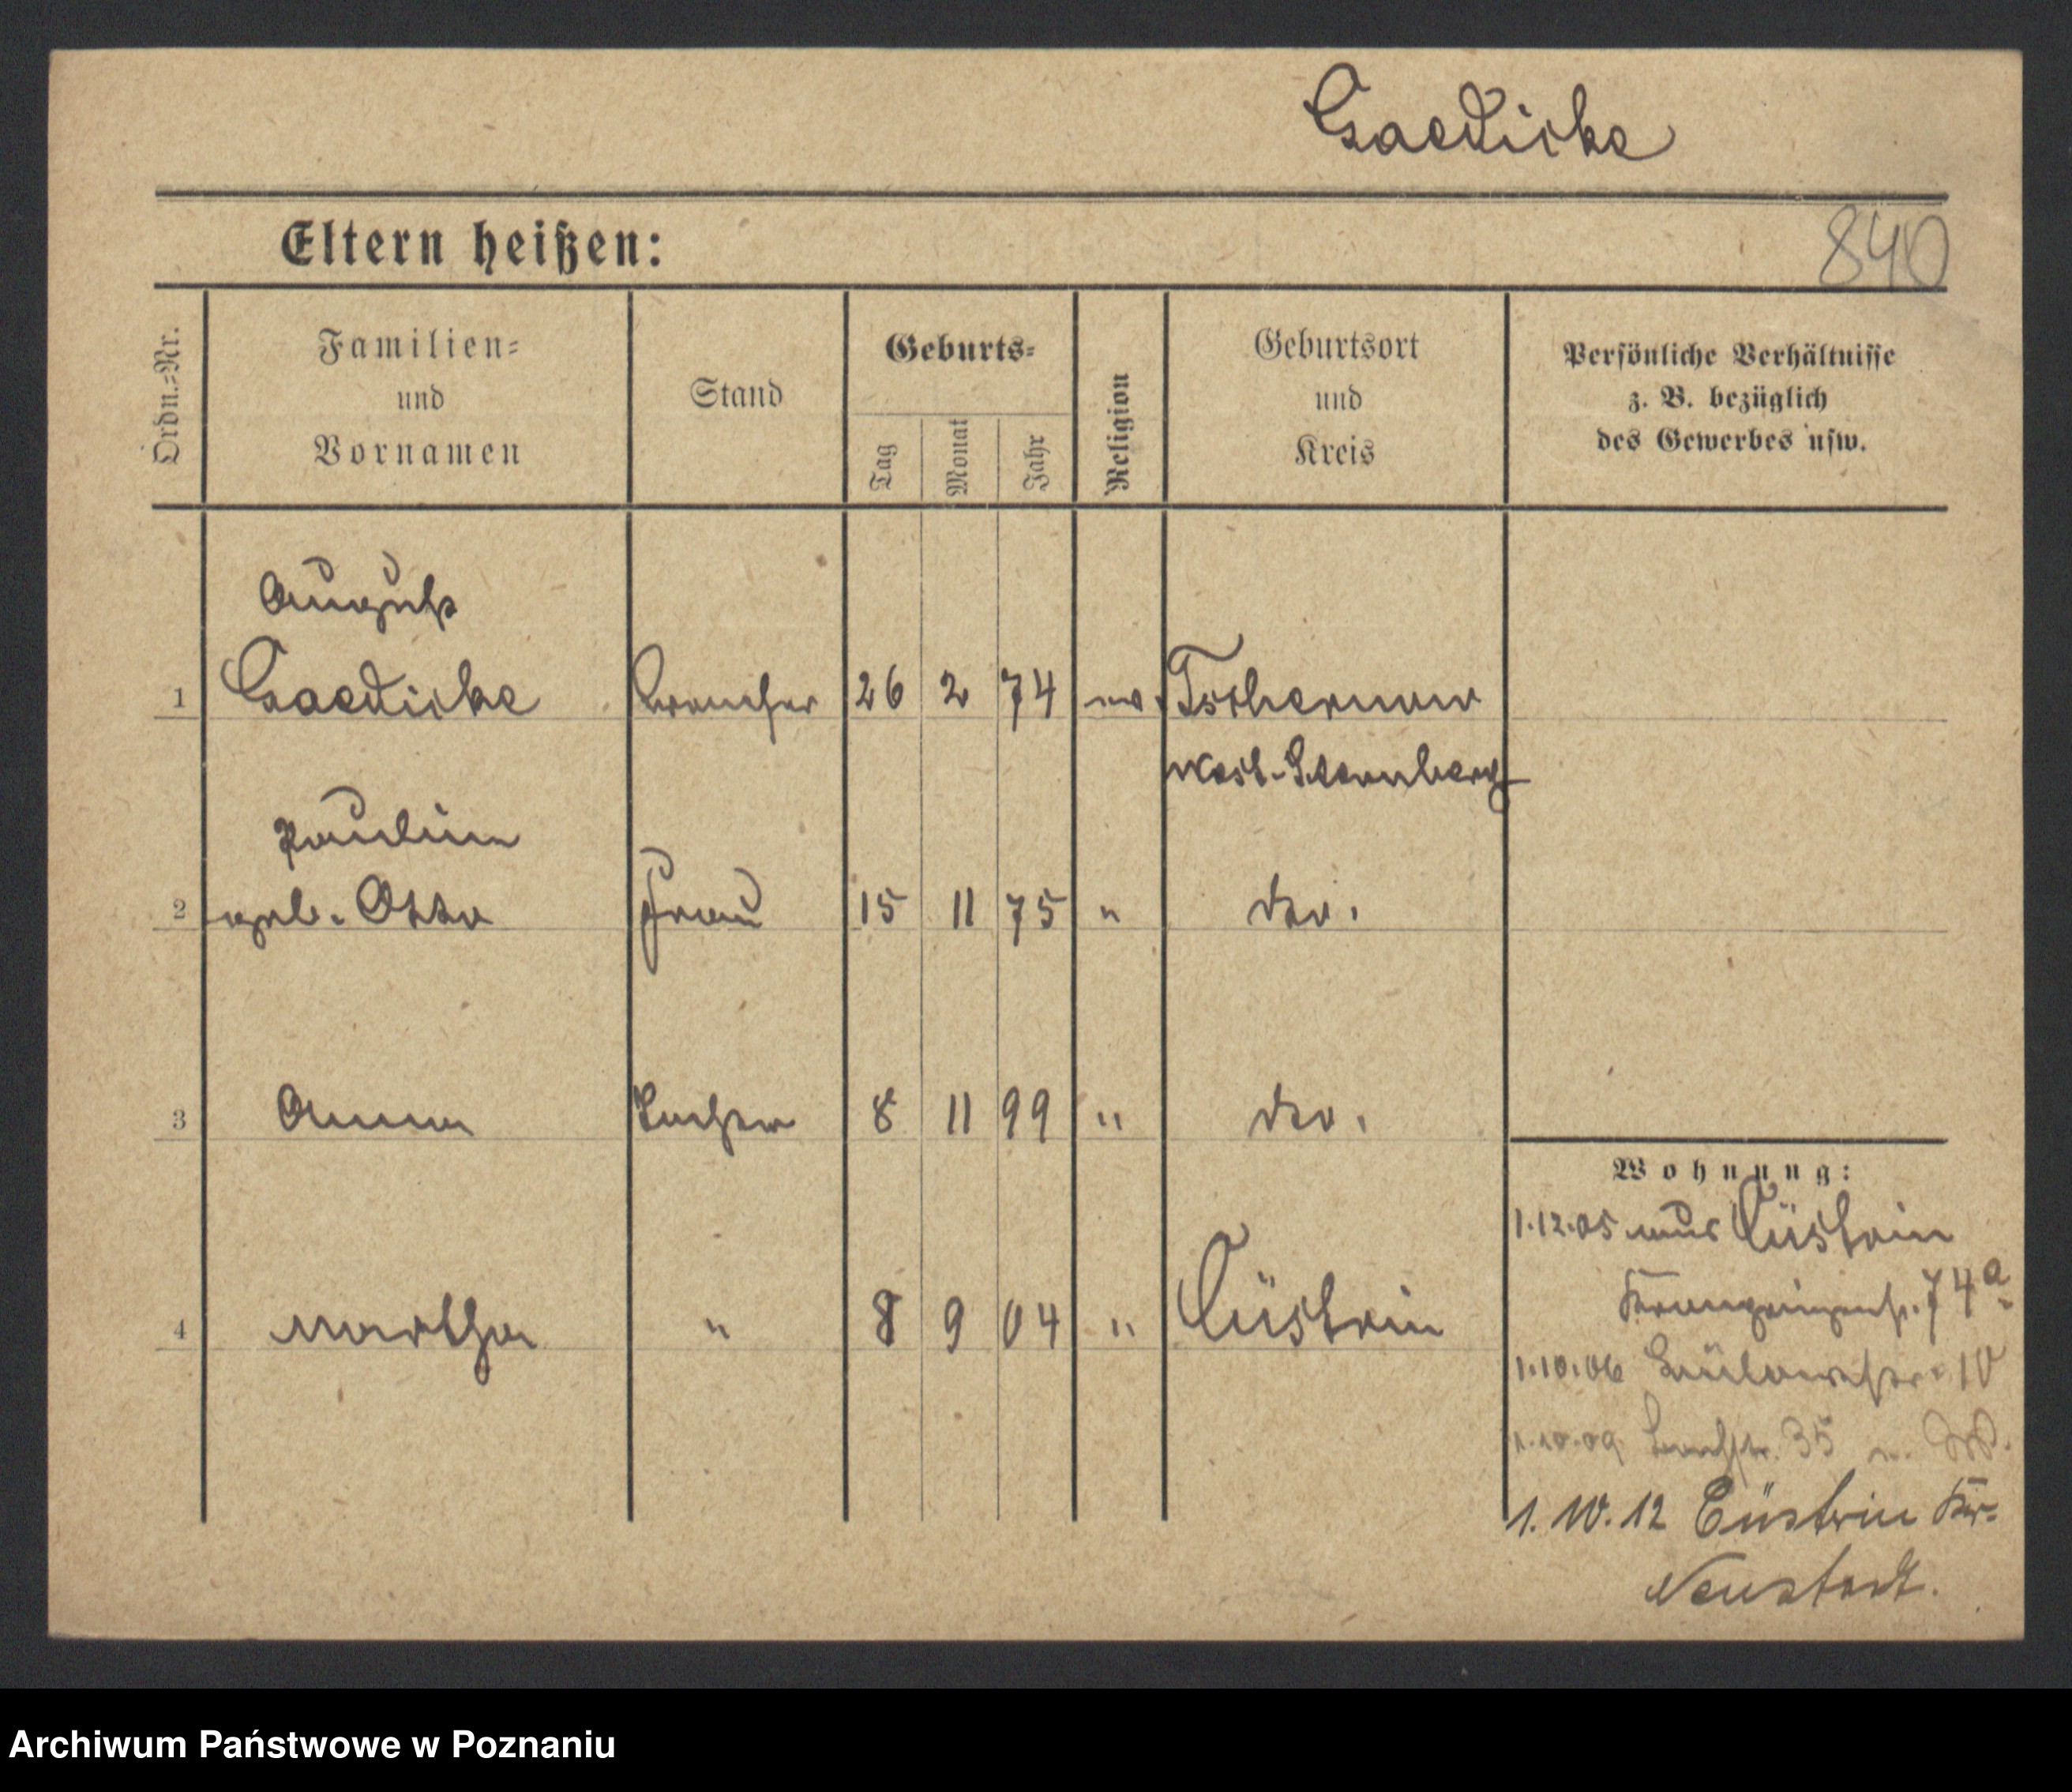 Gaedicke
Eltern heißen:
840
Ordn.=Nr.
Familien=
und
Vornamen
Stand
Geburts=
Tag
Monat
Jahr
Religion
Geburtsort
und
Kreis
Persönliche Verhältnisse
z. B. bezüglich
des Gewerbes usw.
August
1 Gaedicke 26 2 74 ev. Tschernow
West-Sternberg
Pauline
2 geb. Otto Frau 15 11 75 " dto.
3 Anna Tochter 8 11 99 " dto.
4 Martha " 8 9 04 " Cüstrin
Wohnung:
1.12.05 aus Cüstrin
Kronprinzenstr. 74a
1.10.06 Bülowstr. 10
1.10.09 35
1.10.12 Cüstrin
Neustadt.
Archiwum Państwowe w Poznaniu